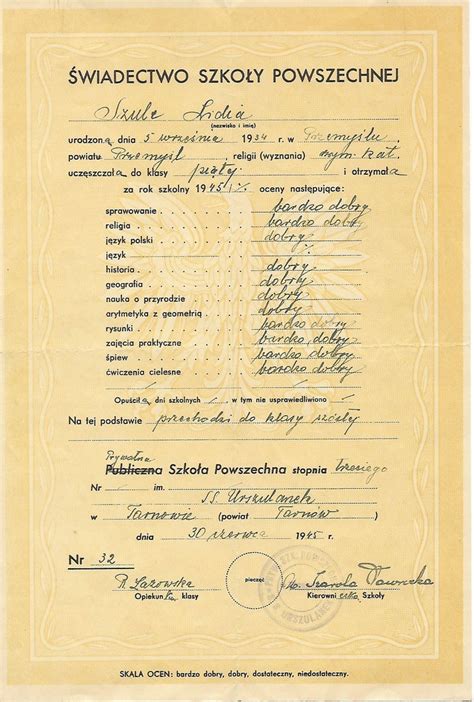 ŚWIADECTWO SZKOŁY POWSZECHNEJ
Szulc Lidia
(nazwisko i imię)
urodzona dnia 5 września 1934 r. w Przemyślu
powiatu Przemyśl, religii (wyznania) rzym. kat.
uczęszczała do klasy piątej i otrzymała
za rok szkolny 1945 oceny następujące:
sprawowanie bardzo dobry
religia bardzo dobry
język polski dobry
język
historia dobry
geografia dobry
nauka o przyrodzie dobry
arytmetyka z geometrią dobry
rysunki bardzo dobry
zajęcia praktyczne bardzo dobry
śpiew bardzo dobry
ćwiczenia cielesne bardzo dobry
Opuściła dni szkolnych, w tym nie usprawiedliwiono
Na tej podstawie przechodzi do klasy szóstej
Prywatna
Publiczna Szkoła Powszechna stopnia trzeciego
Nr / im. SS. Urszulanek
w Tarnowie (powiat Tarnów)
dnia 30 czerwca 1945 r.
Nr 32
Opiekun klasy
pieczęć
Kierowniczka Szkoły
SKALA OCEN: bardzo dobry, dobry, dostateczny, niedostateczny.